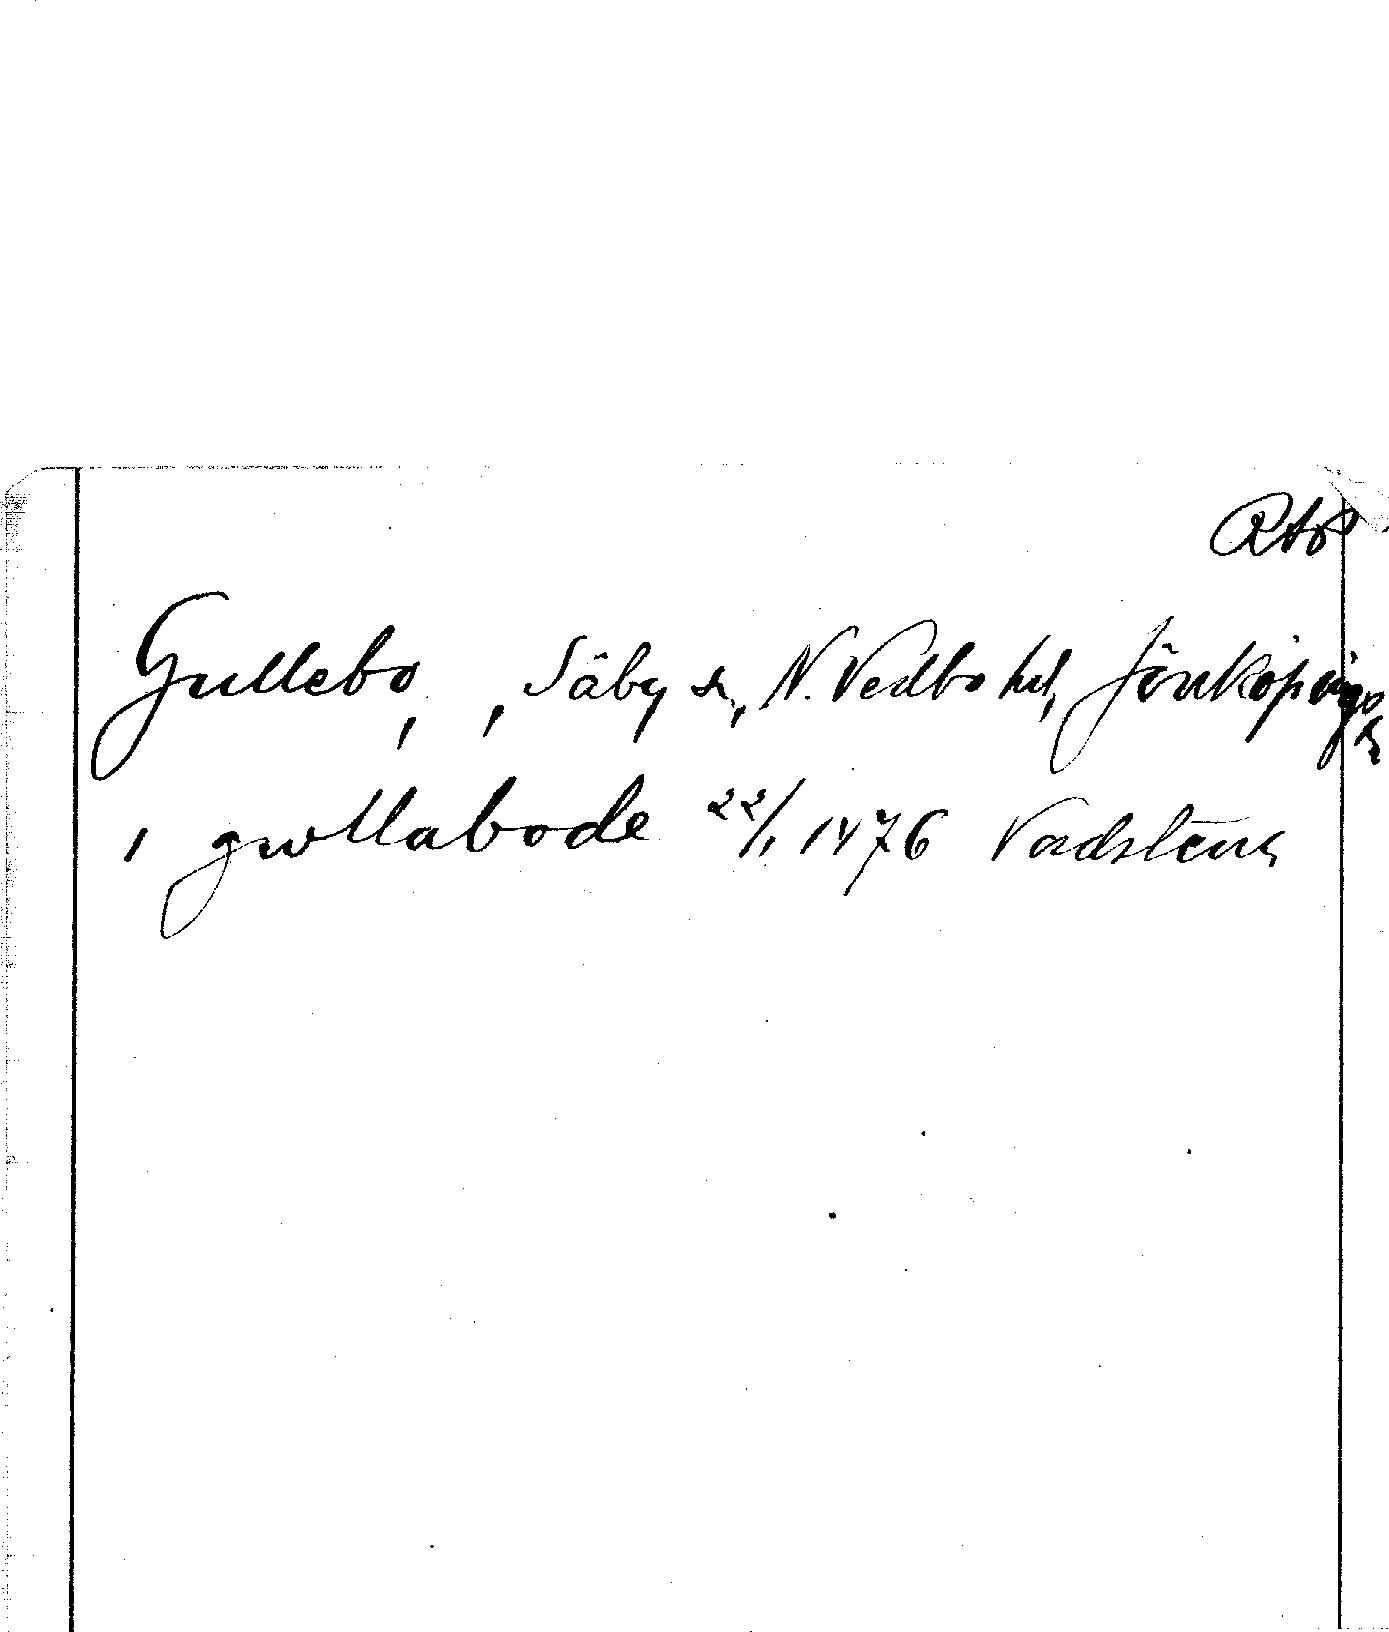 Rto
Gullebo, , Säby sn, N. Vedbo hd, Jönköpings
l
i gwllabode 22/1 1476 Vadstena